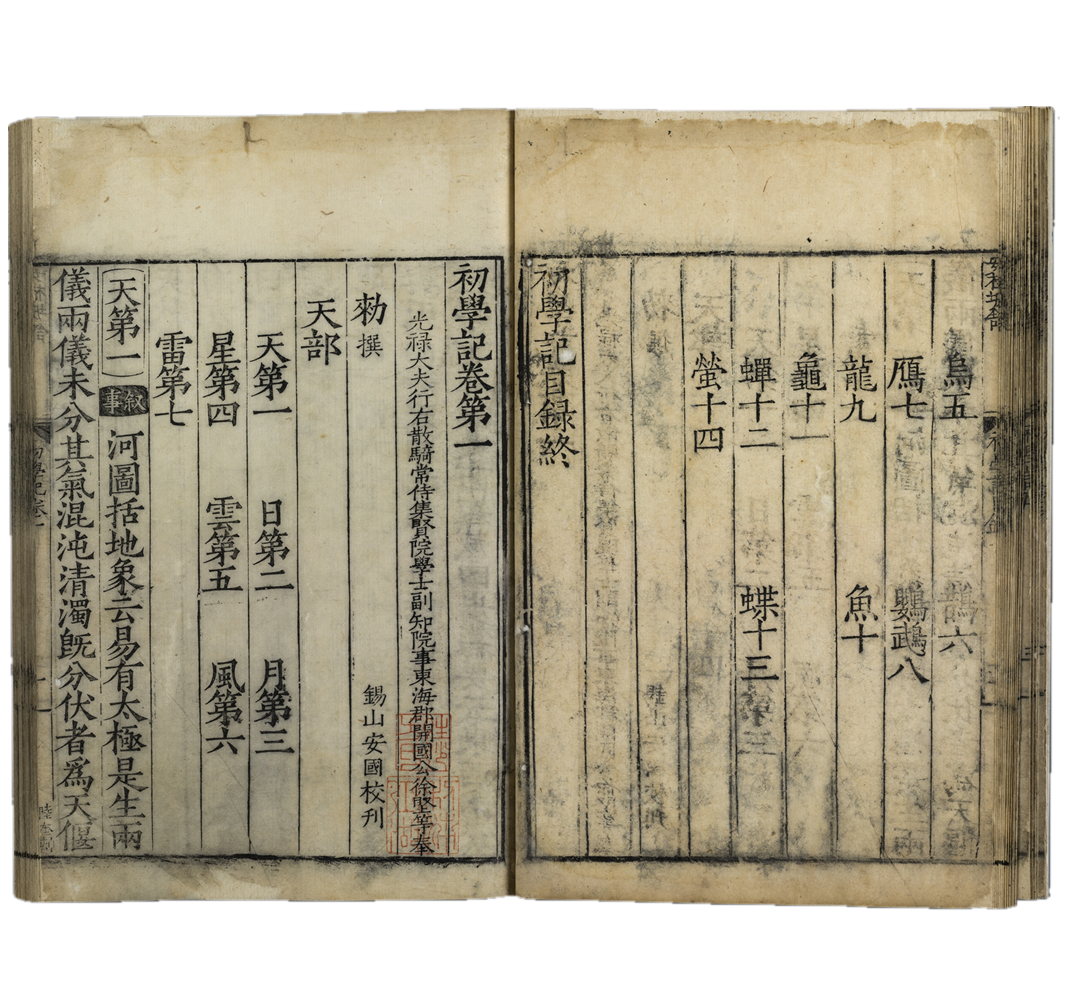 烏五 鵲六
鴈七 鸚鵡八
龍九 魚十
龜十一
蟬十二 蝶十三
螢十四
初學記目録終
初學記卷第一
光禄大夫行右散騎常侍集賢院學士副知院事東海郡開國公徐堅等奉
勑撰 錫山安國校刊
天部
天第一 日第二 月第三
星第四 雲第五 風第六
雷第七
天第一 叙事 河圖括地象云易有太極是生兩
儀兩儀未分其氣混沌清濁既分伏者爲天偃